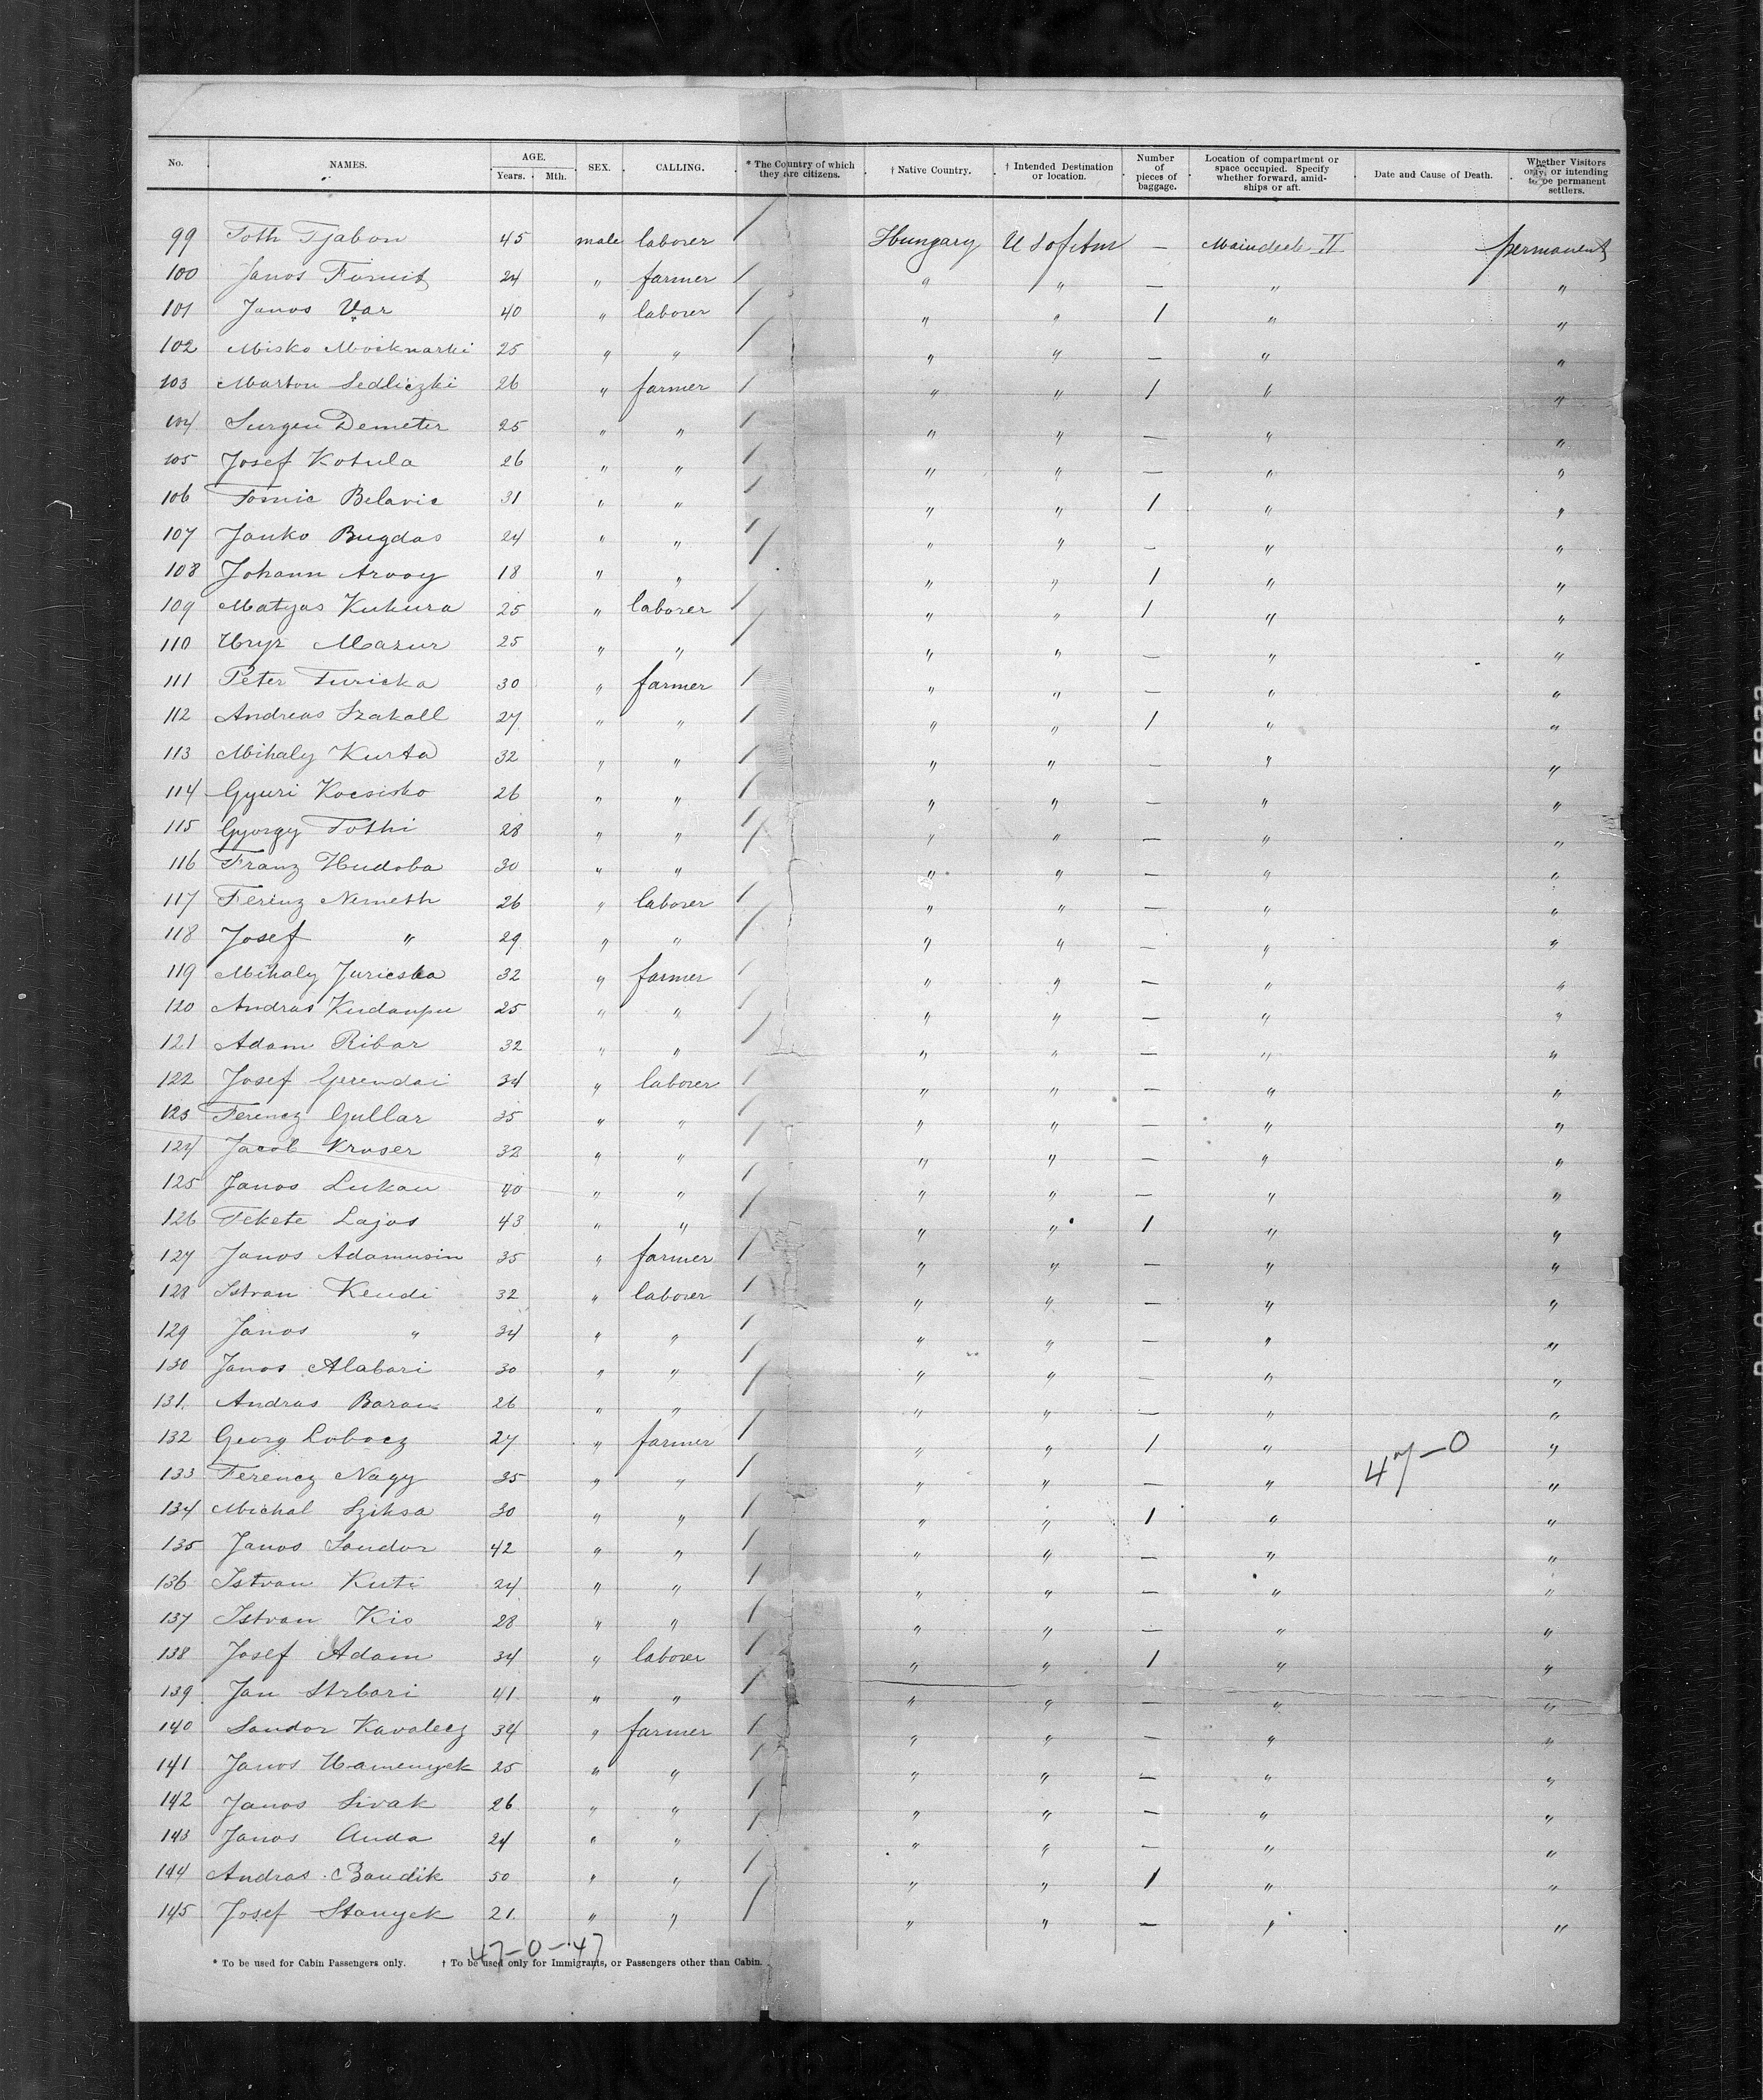 No. NAMES. AGE. Years. Mth. SEX. CALLING. * The Country of which they are citizens. † Native Country. † Intended Destination or location. Number of pieces of baggage. Location of compartment or space occupied. Specify whether forward, amidships or aft. Date and Cause of Death. Whether Visitors only, or intending to be permanent settlers.
99 Toth 45 male laborer / Hungary U S of Am — Maindeck II permanent
100 Janos 24 " farmer / " " — " "
101 Janos Var 40 " laborer / " " 1 " "
102 Misko 25 " " / " " — " "
103 Marton Sedliczki 26 " farmer / " " 1 " "
104 Demeter 25 " " / " " — " "
105 Josef Kotula 26 " " / " " — " "
106 Tomic Belavic 31 " " / " " 1 " "
107 Janko Bugdas 24 " " / " " — " "
108 Johann 18 " " / " " 1 " "
109 Matyas Kukura 25 " laborer / " " 1 " "
110 Hryz Mazur 25 " " / " " — " "
111 Peter Turicka 30 " farmer / " " — " "
112 Andreas Szakall 27 " " / " " 1 " "
113 Mihaly Kurta 32 " " / " " — " "
114 Gyuri Kocsisko 26 " " / " " — " "
115 Gyorgy Tothi 28 " " / " " — " "
116 Franz Hudoba 30 " " / " " — " "
117 Ferinz Nemeth 26 " laborer / " " — " "
118 Josef " 29 " " / " " — " "
119 Mihaly Juricska 32 " farmer / " " — " "
120 Andras 25 " " / " " — " "
121 Adam Ribar 32 " " / " " — " "
122 Josef Gerendai 34 " laborer / " " — " "
123 Ferencz Gullar 35 " " / " " — " "
124 Jacob Kroser 32 " " / " " — " "
125 Janos Lukan 40 " " / " " — " "
126 Fekete Lajos 43 " " / " " 1 " "
127 Janos Adamusin 35 " farmer / " " — " "
128 Istvan Kendi 32 " laborer / " " — " "
129 Janos " 34 " " / " " — " "
130 Janos Alabari 30 " " / " " — " "
131. Andras Baran 26 " " / " " — " "
132 Georg Lobocz 27 " farmer / " " 1 " "
47–0
133 Ferencz Nagy 35 " " / " " — " "
134 Michal Sziksa 30 " " / " " 1 " "
135 Janos Sandor 42 " " / " " — " "
136 Istvan Kuti 24 " " / " " — " "
137 Istvan Kis 28 " " / " " — " "
138 Josef Adam 34 " laborer / " " 1 " "
139 Jan Strbari 41 " " / " " — " "
140 Sandor Kavalecz 34 " farmer / " " — " "
141 Janos Hamenyek 25 " " / " " — " "
142 Janos Sivak 26 " " / " " — " "
143 Janos Anda 24 " " / " " — " "
144 Andras Bandik 50 " " / " " 1 " "
145 Josef Stanyek 21 " " / " " — " "
47–0–47
* To be used for Cabin Passengers only. † To be used only for Immigrants, or Passengers other than Cabin.